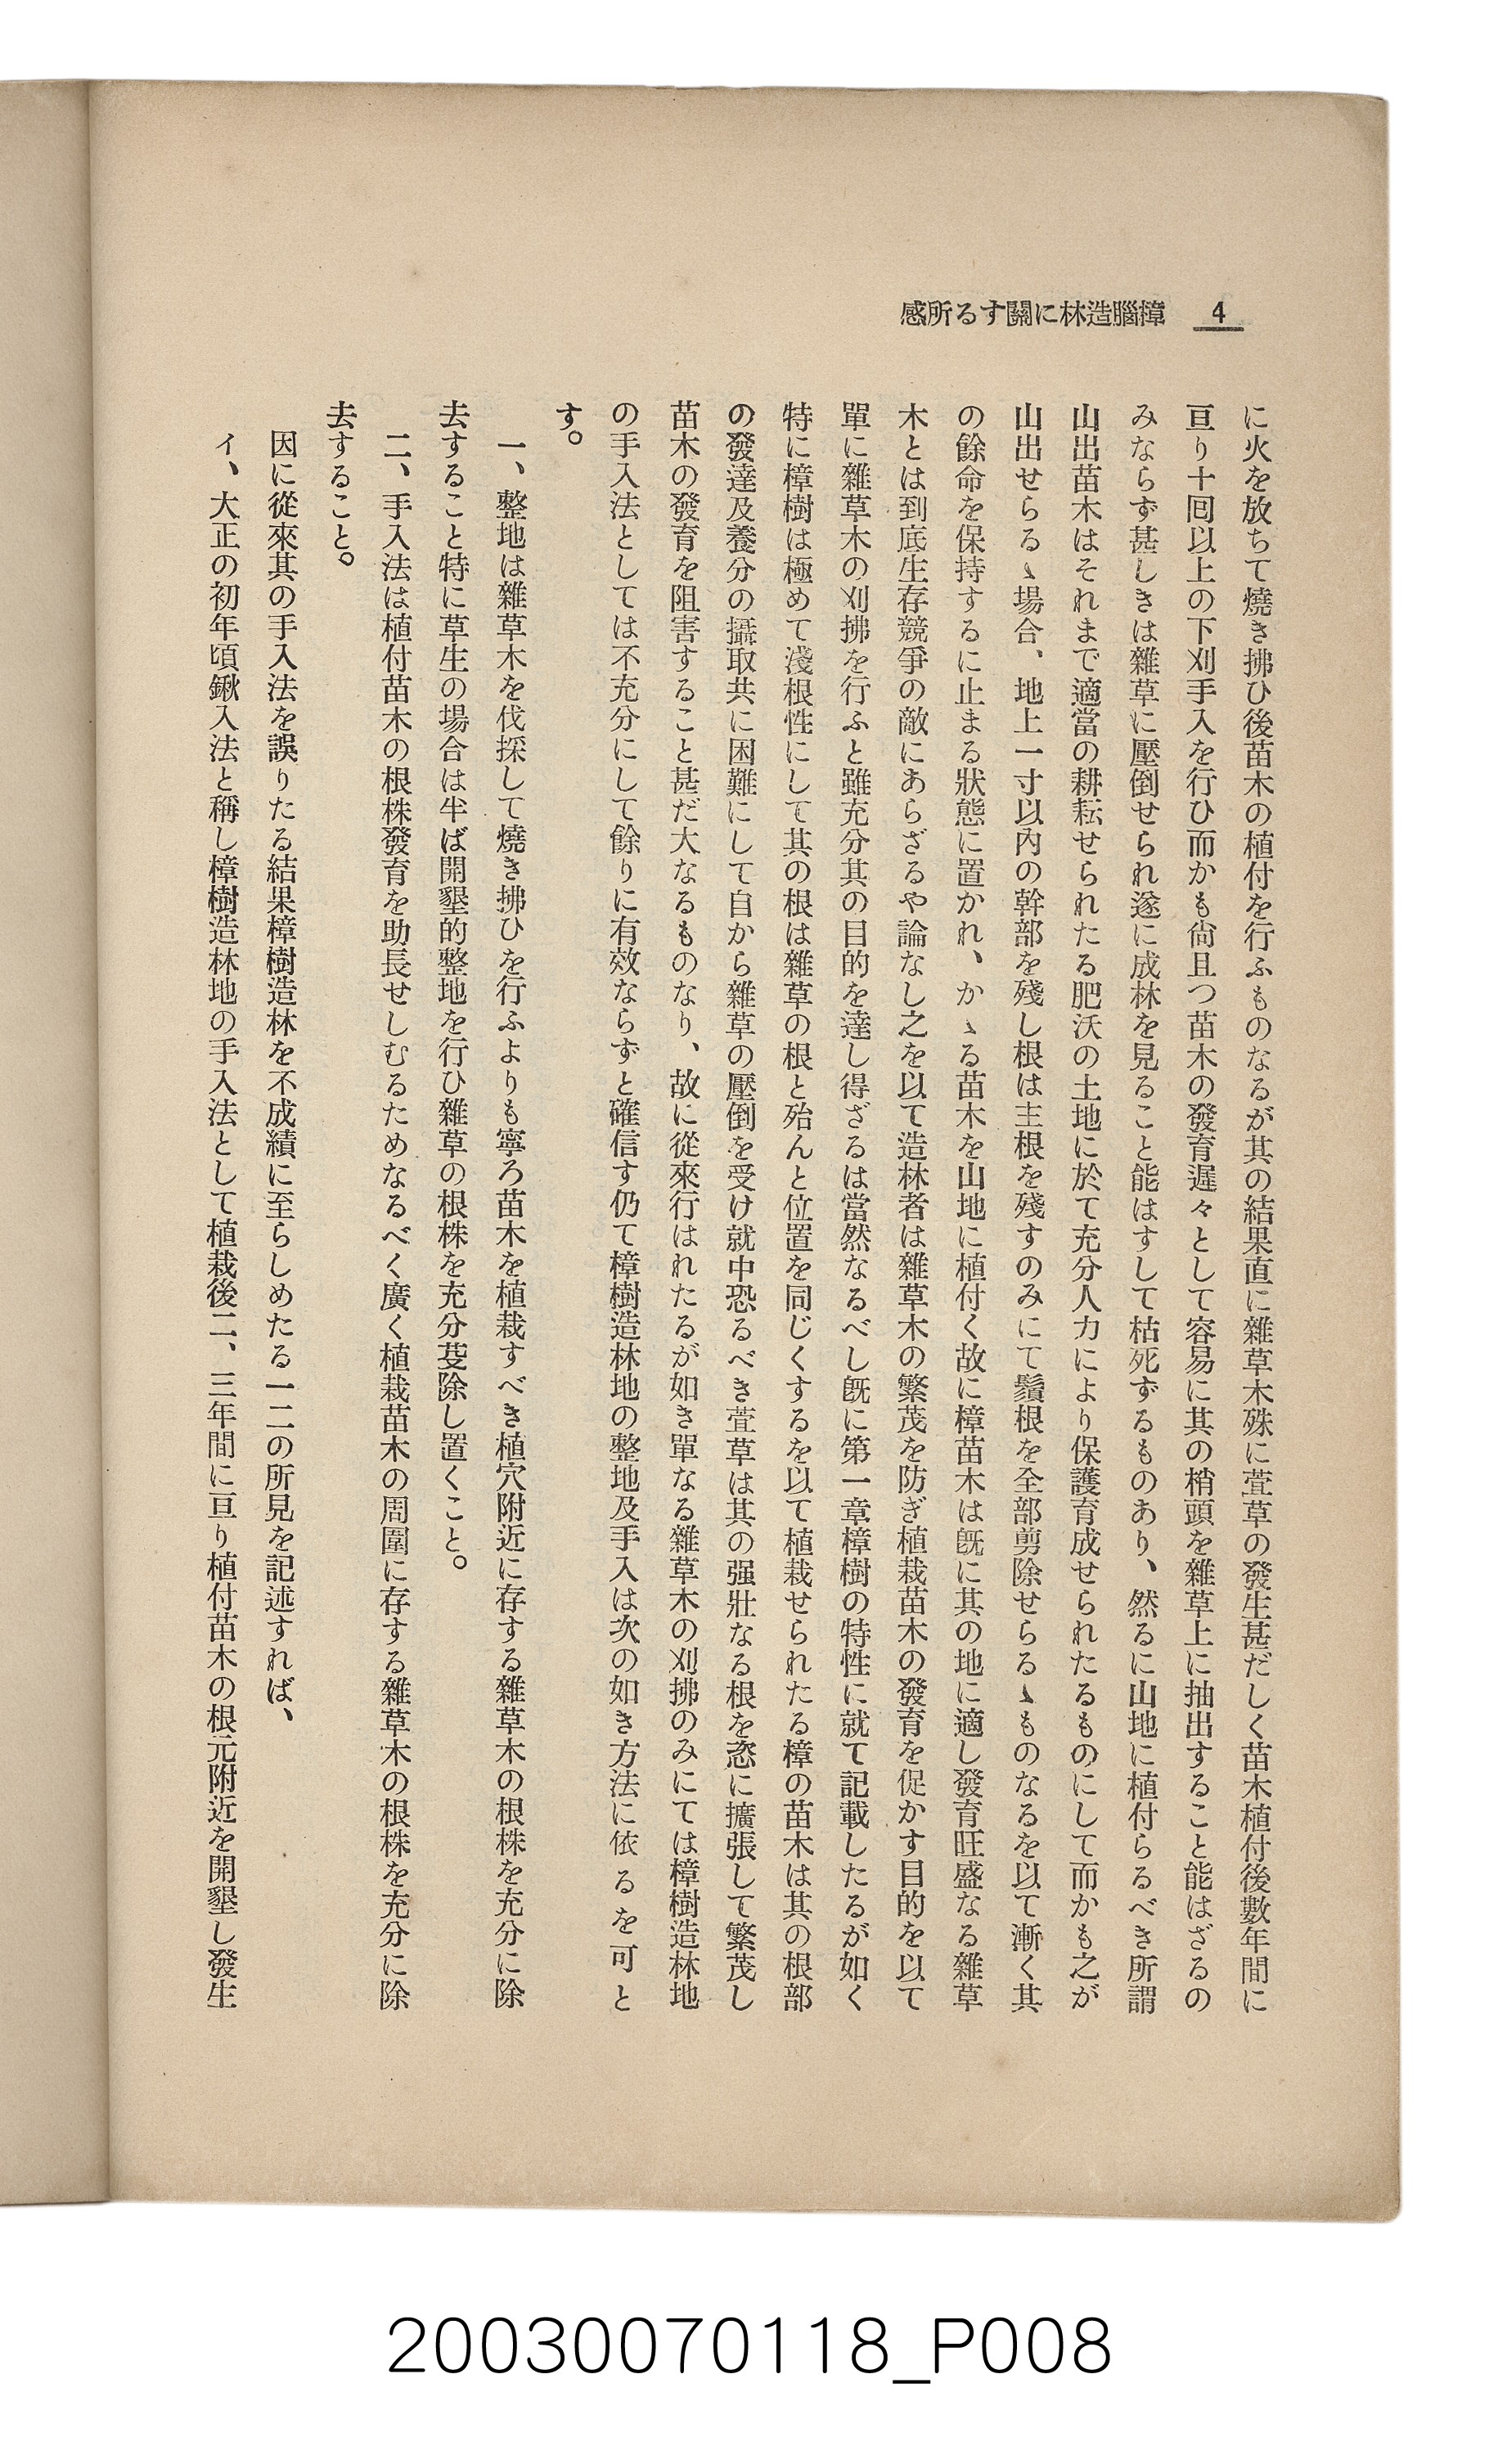 4 樟腦造林に關する所感
に火を放ちて燒き拂ひ後苗木の植付を行ふものなるが其の結果直に雜草木殊に萱草の發生甚だしく苗木植付後數年間に
亘り十回以上の下刈手入を行ひ而かも尙且つ苗木の發育遲々として容易に其の梢頭を雜草上に抽出すること能はざるの
みならず甚しきは雜草に壓倒せられ遂に成林を見ること能はすして枯死ずるものあり、然るに山地に植付らるべき所謂
山出苗木はそれまで適當の耕耘せられたる肥沃の土地に於て充分人力により保護育成せられたるものにして而かも之が
山出せらるゝ場合、地上一寸以內の幹部を殘し根は主根を殘すのみにて鬚根を全部剪除せらるゝものなるを以て漸く其
の餘命を保持するに止まる狀態に置かれ、かゝる苗木を山地に植付く故に樟苗木は旣に其の地に適し發育旺盛なる雜草
木とは到底生存競爭の敵にあらざるや論なし之を以て造林者は雜草木の繁茂を防ぎ植栽苗木の發育を促かす目的を以て
單に雜草木の刈拂を行ふと雖充分其の目的を達し得ざるは當然なるべし旣に第一章樟樹の特性に就て記載したるが如く
特に樟樹は極めて淺根性にして其の根は雜草の根と殆んと位置を同じくするを以て植栽せられたる樟の苗木は其の根部
の發達及養分の攝取共に困難にして自から雜草の壓倒を受け就中恐るべき萱草は其の强壯なる根を恣に擴張して繁茂し
苗木の發育を阻害すること甚だ大なるものなり、故に從來行はれたるが如き單なる雜草木の刈拂のみにては樟樹造林地
の手入法としては不充分にして餘りに有效ならずと確信す仍て樟樹造林地の整地及手入は次の如き方法に依るを可と
す。
一、整地は雜草木を伐採して燒き拂ひを行ふよりも寧ろ苗木を植栽すべき植穴附近に存する雜草木の根株を充分に除
去すること特に草生の場合は半ば開墾的整地を行ひ雜草の根株を充分芟除し置くこと。
二、手入法は植付苗木の根株發育を助長せしむるためなるべく廣く植栽苗木の周圍に存する雜草木の根株を充分に除
去すること。
因に從來其の手入法を誤りたる結果樟樹造林を不成績に至らしめたる一二の所見を記述すれば、
イ、大正の初年頃鍬入法と稱し樟樹造林地の手入法として植栽後二、三年間に亘り植付苗木の根元附近を開墾し發生
20030070118_P008